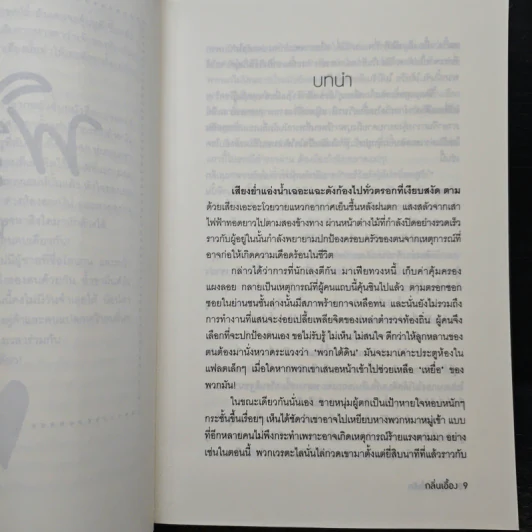 บทนำ
เสียงย่ำแอ่งน้ำเฉอะแฉะดังก้องไปทั่วตรอกที่เงียบสงัด ตาม
ด้วยเสียงเอะอะโวยวายแหวกอากาศเย็นชื้นหลังฝนตก แสงสลัวจากเสา
ไฟฟ้าทอดยาวไปตามสองข้างทาง ผ่านหน้าต่างไม้ที่กำลังปิดอย่างรวดเร็ว
ราวกับผู้อยู่ในนั้นกำลังพยายามปกป้องครอบครัวของตนจากเหตุการณ์ที่
อาจก่อให้เกิดความเดือดร้อนในชีวิต
กล่าวได้ว่าการที่นักเลงตีกัน มาเฟียทวงหนี้ เก็บค่าคุ้มครอง
แผงลอย กลายเป็นเหตุการณ์ที่ผู้คนแถบนี้คุ้นชินไปแล้ว ตามตรอกซอก
ซอยในย่านชนชั้นล่างนั้นมีสภาพร้ายกาจเหลือทน และนั่นยังไม่รวมถึง
การทำงานที่แสนจะย่อนเปลี้ยเพลียจิตของเหล่าตำรวจท้องถิ่น ผู้คนจึง
เลือกที่จะปกป้องตนเอง ขอไม่รับรู้ ไม่เห็น ไม่สนใจ ดีกว่าให้ลูกหลานของ
ตนต้องมานั่งหวาดระแวงว่า 'พวกใต้ดิน' มันจะมาเคาะประตูห้องใน
แฟลตเล็กๆ เมื่อใดหากพวกเขาเสนอหน้าเข้าไปช่วยเหลือ 'เหยื่อ' ของ
พวกมัน!
ในขณะเดียวกันนั่นเอง ชายหนุ่มผู้ตกเป็นเป้าหายใจหอบหนักๆ
กระชั้นขึ้นเรื่อยๆ เห็นได้ชัดว่าเขาอาจไปเหยียบหางพวกหมาหมู่เข้า แบบ
ที่อีกหลายคนไม่พึงกระทำเพราะอาจเกิดเหตุการณ์ร้ายแรงตามมา อย่าง
เช่นในตอนนี้ พวกเวรตะไลนั่นไล่กวดเขามาตั้งแต่ยี่สิบนาทีที่แล้วราวกับ
กลิ่นเอื้อง 9